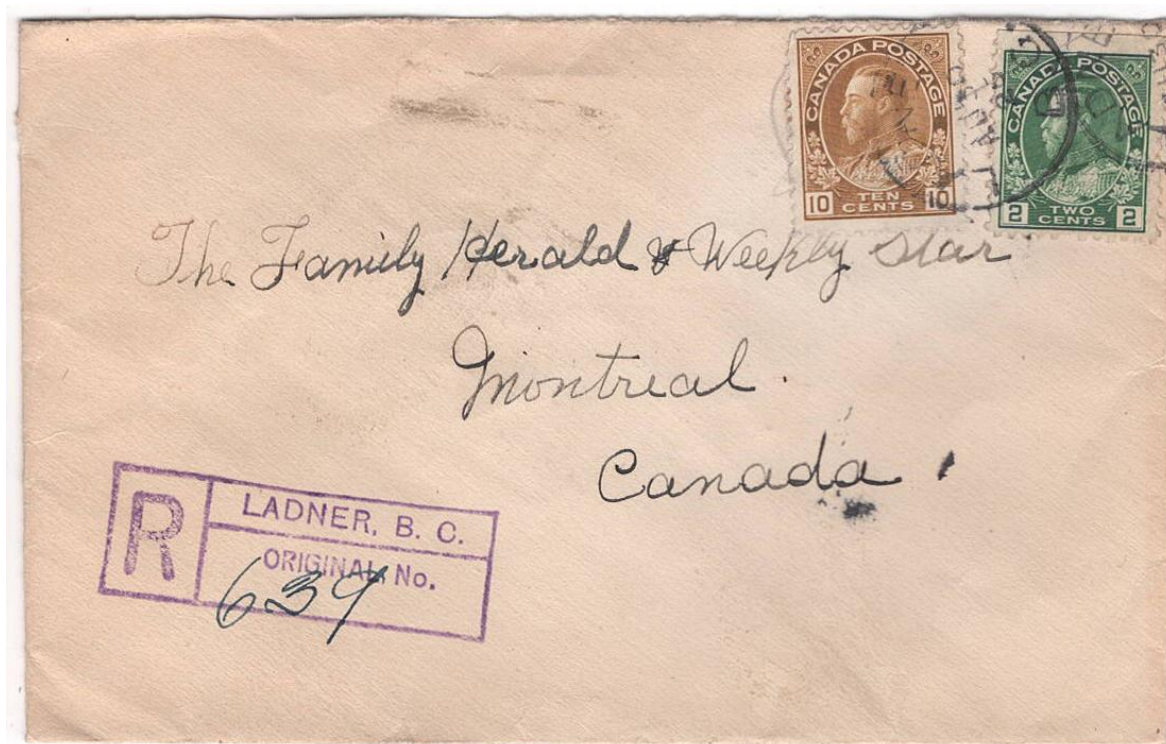 CANADA POSTAGE
10 TEN CENTS 10
CANADA POSTAGE
2 TWO CENTS 2
The Family Herald & Weekly Star
Montreal.
Canada
R
LADNER, B. C.
ORIGINAL No.
639